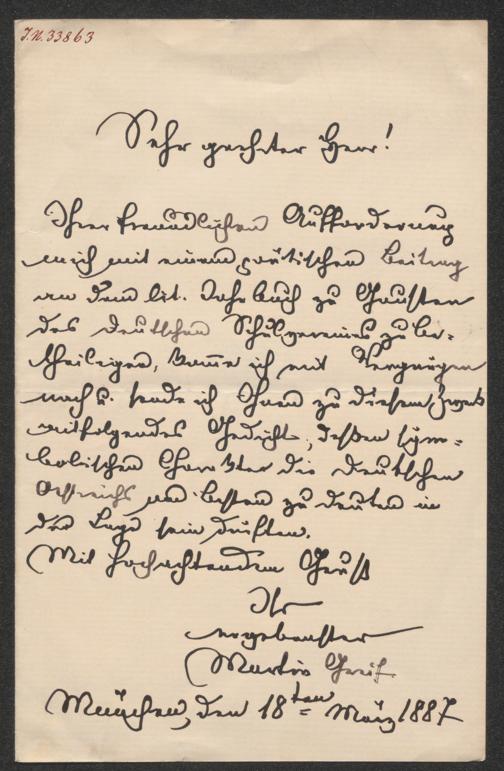 I.N. 33863
Sehr geehrter Herr!
Ihrer freundlichen Aufforderung
mich mit einem poetischen Beitrag
an dem lit. Jahrbuch zu Gunsten
des deutschen Schulvereines zu be-
theiligen, komme ich mit Vergnügen
nach u. sende ich Ihnen zu diesem Zweck
mitfolgendes Gedicht, dessen sym-
bolischen Charakter die Deutschen
Oestreichs am besten zu deuten in
der Lage sein dürften.
Mit hochachtendem Gruß
Ihr
ergebenster
Martin Greif.
München, den 18ten März 1887